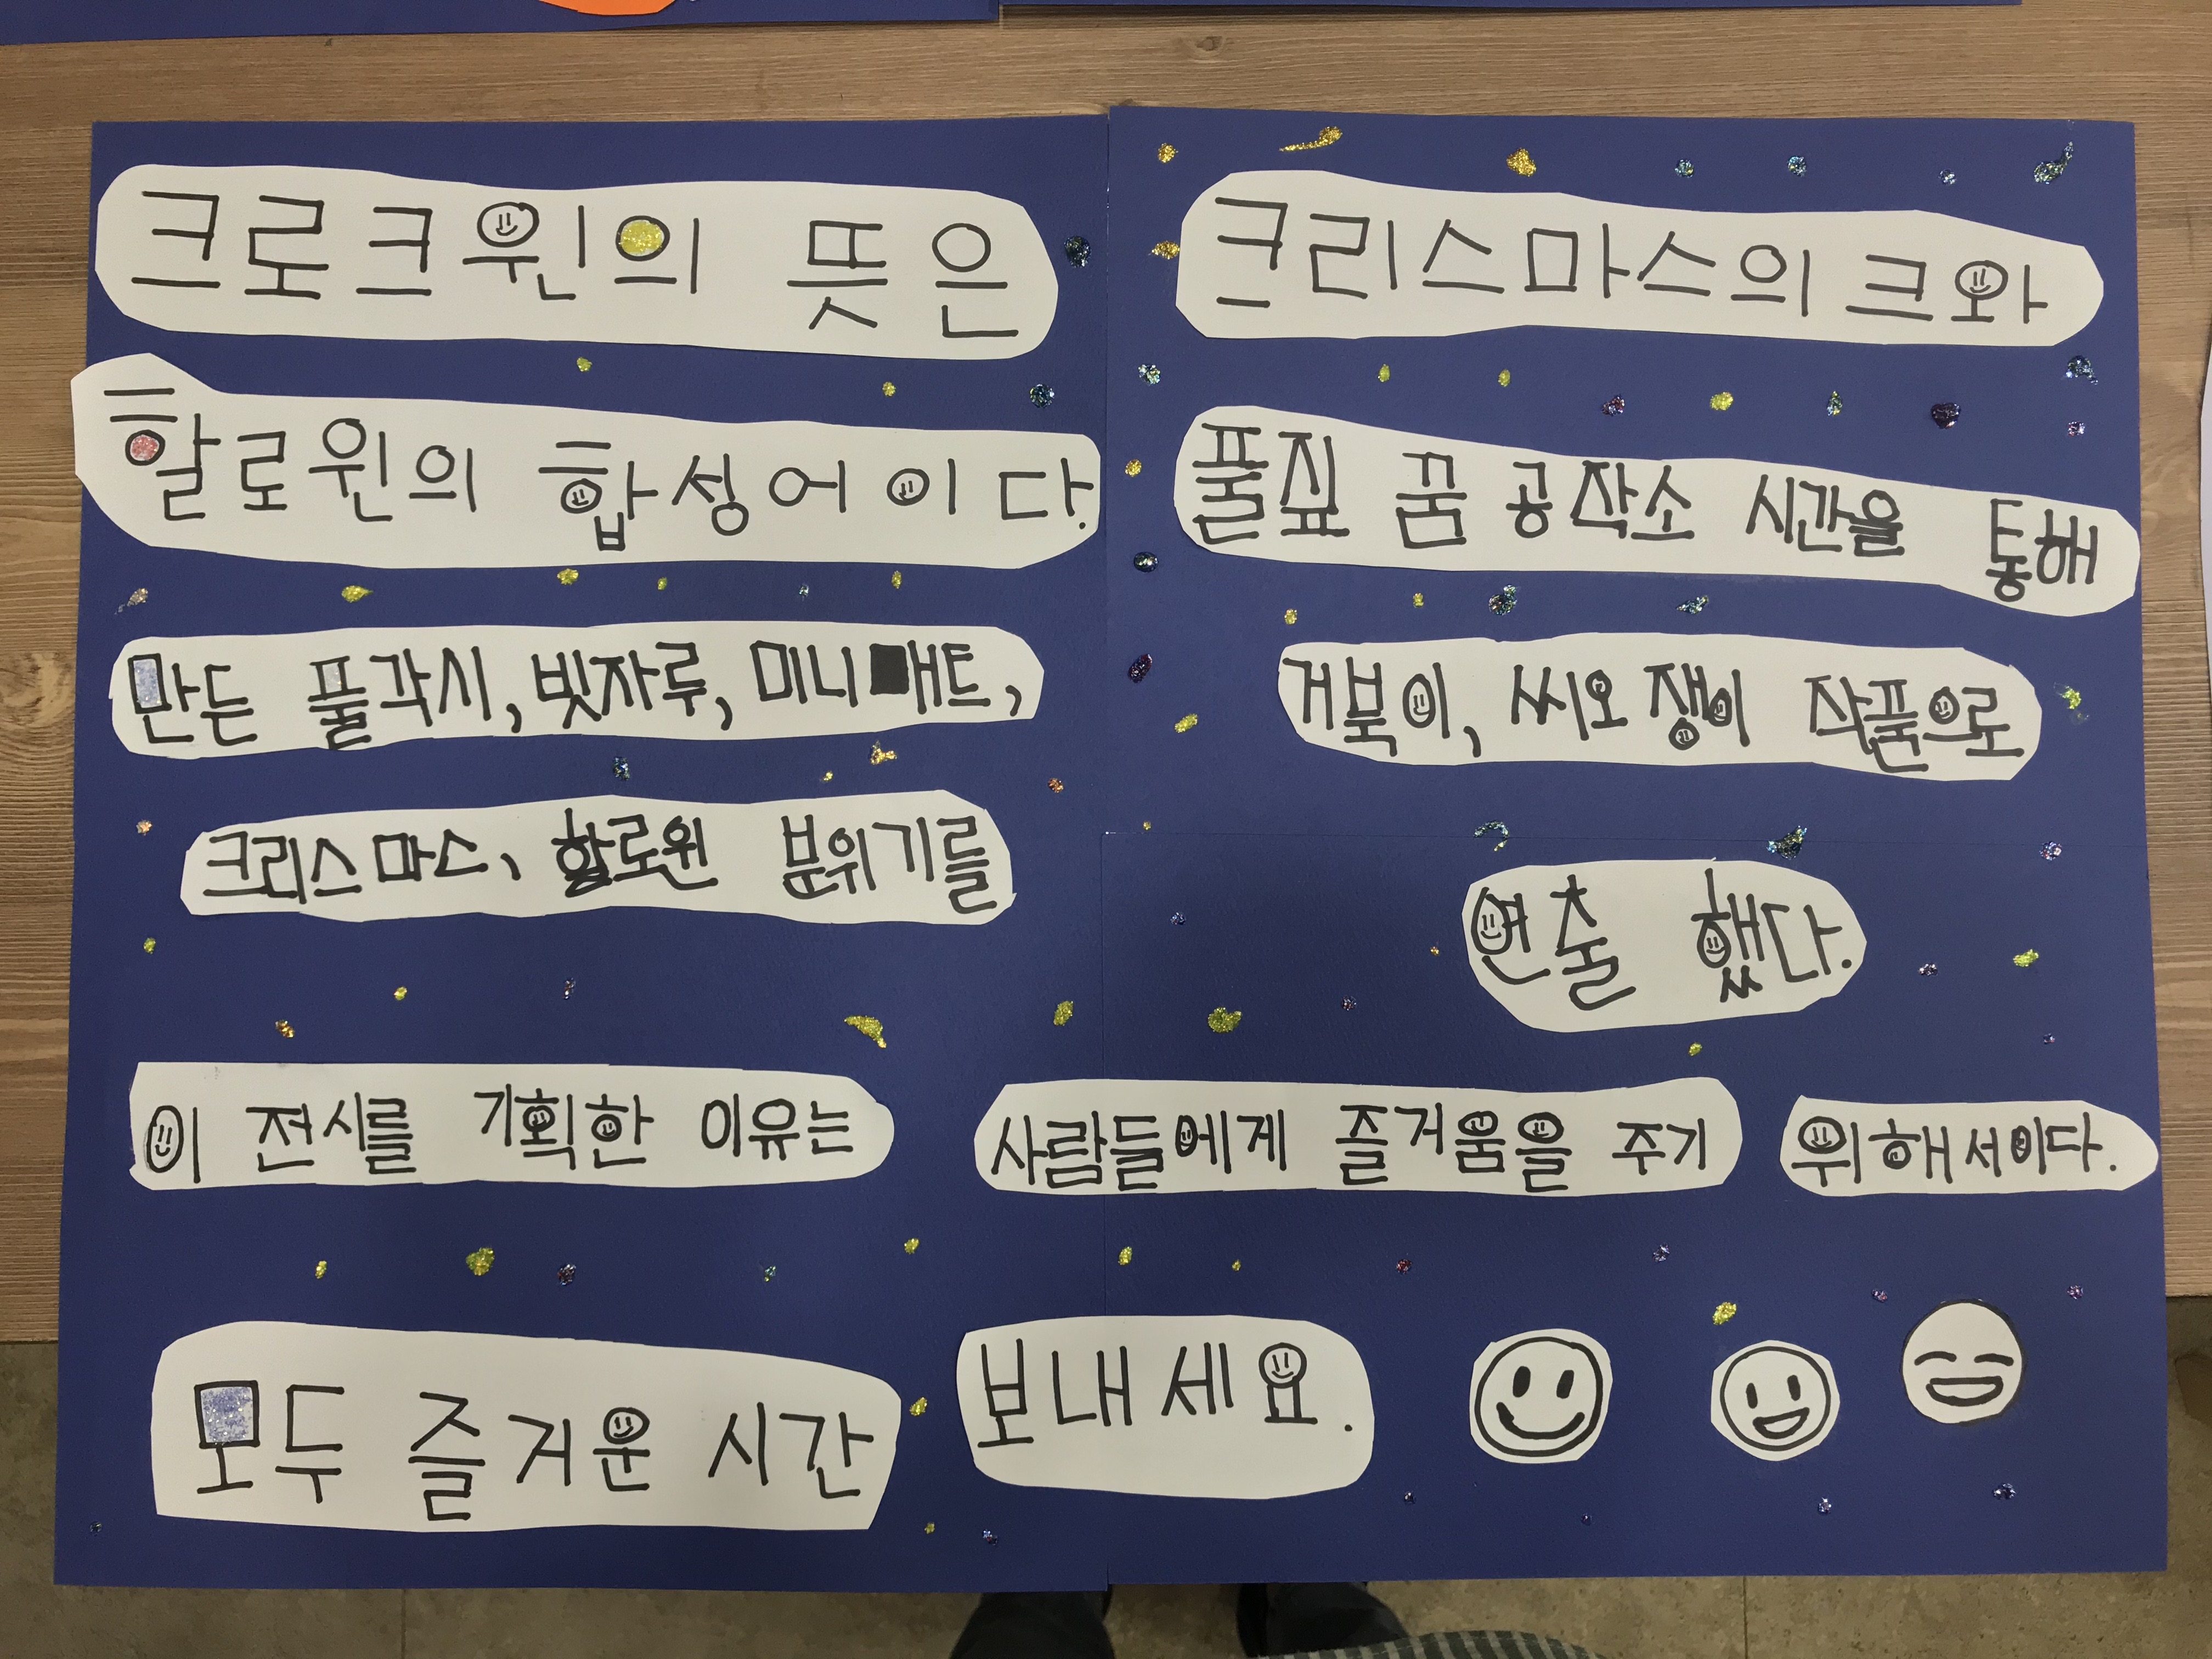 크로크윈의 뜻은 크리스마스의 크와
할로윈의 합성어이다. 풀짚 꿈 공작소 시간을 통해
만든 풀각시, 빗자루, 미니매트, 거북이, 씨오쟁이 작품으로
크리스마스, 할로윈 분위기를 연출 했다.
이 전시를 기획한 이유는 사람들에게 즐거움을 주기 위해서이다.
모두 즐거운 시간 보내세요.